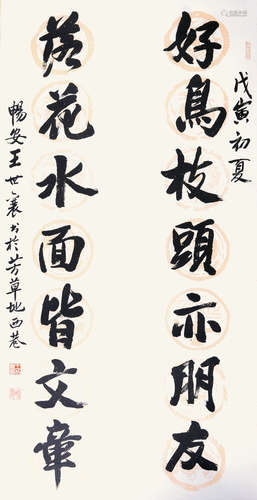 戊寅初夏
好鳥枝頭亦朋友
落花水面皆文章
暢安王世襄书於芳草地西巷